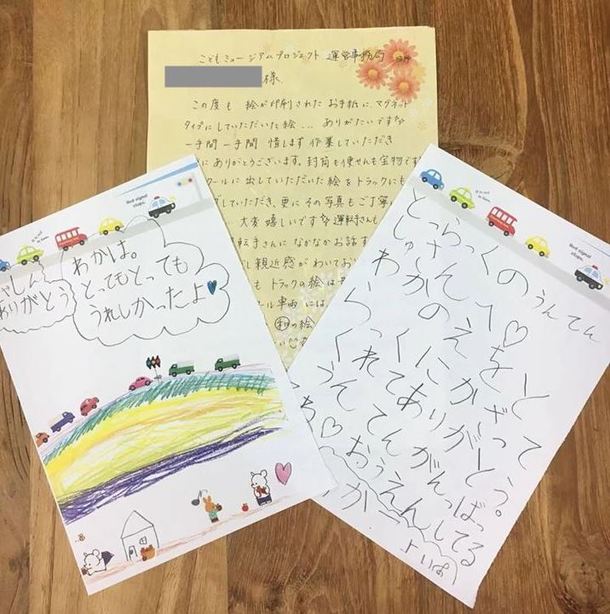 こどもミュージアムプロジェクト 運営事務局
様
この度も 絵が印刷された お手紙に、マグネット
タイプにしていただいた絵... ありがたいですな
一手間一手間 惜します 作業していただき
にありがとうございます。封筒も便せんも宝物です
クールに出していただいた絵をトラックにも
していただき、更にその写真もご丁寧
大変嬉しいです 運転手さんも
転手さんに なかなかお話す
し親近感がわいてお
も トラックの絵は
ル車両には
の絵
Red signal
stops.
しゃしん
ありがとう
わかは。
とってもとっても
うれしかったよ
Red signal
stops.
とらっくのうんてん
しゅさんへ♡
わかのえをと
らっくにかざって
くれてありがとう。
うんてんがんばっ
♡おうえんしてる